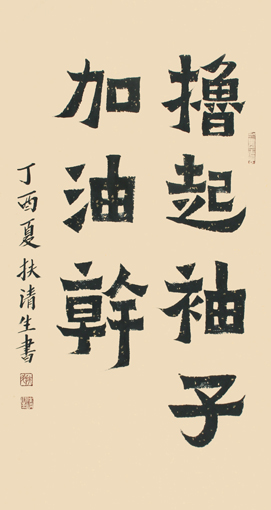 擼起袖子
加油幹
丁酉夏扶清生書